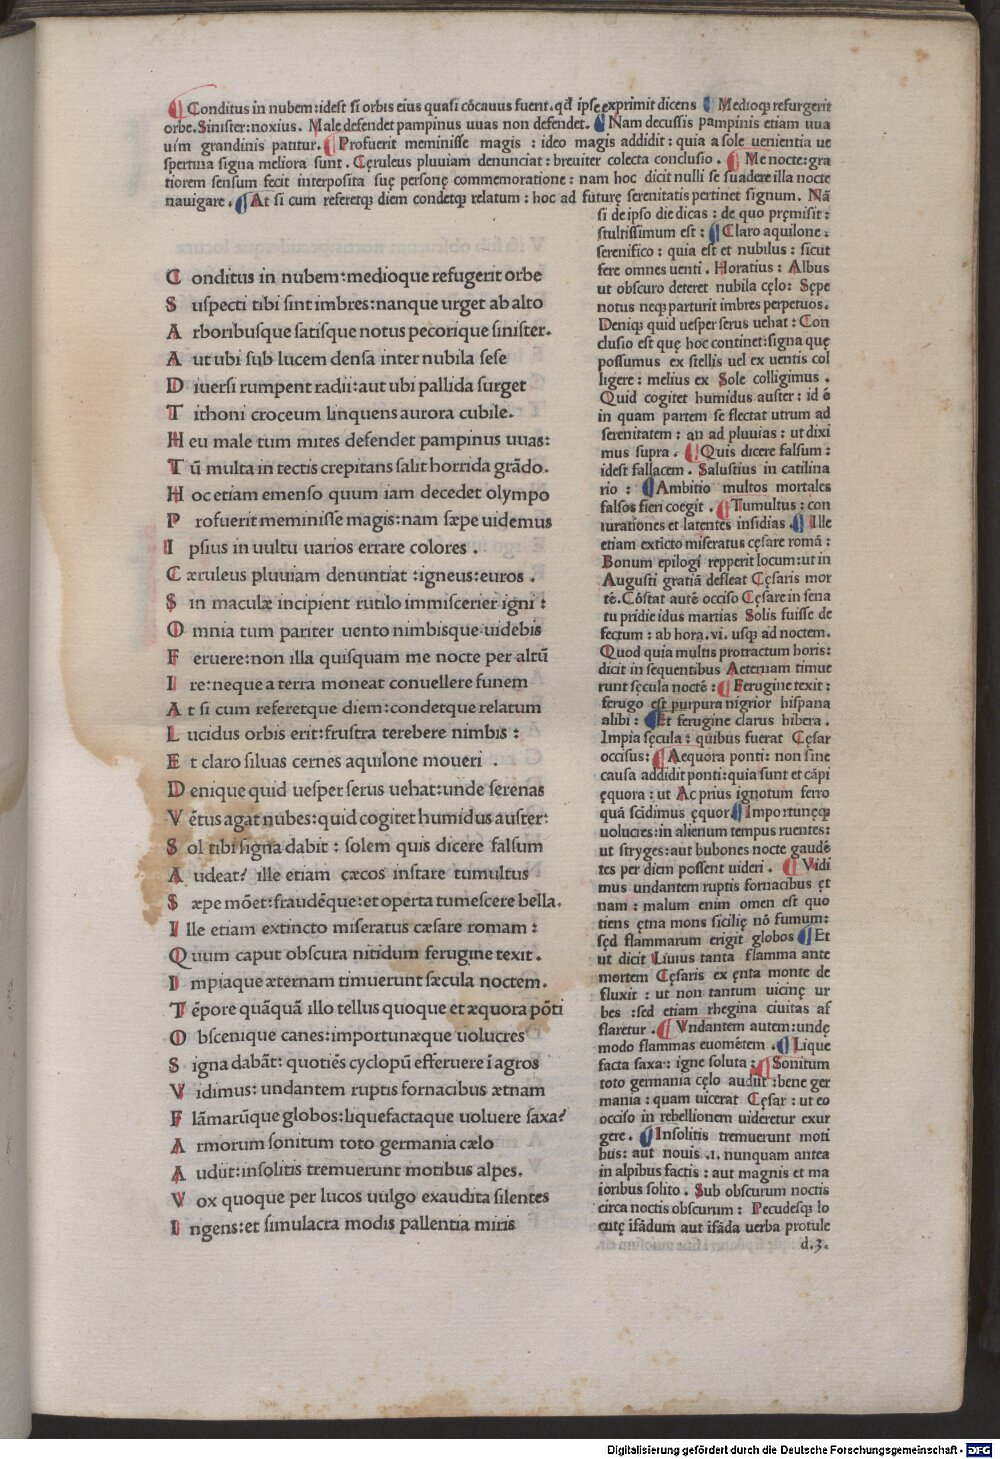 Conditus in nubem:idest si orbis eius quasi cōcauus fuent.qđ ipse exprimit dicens Medioqȝ refurgerit
orbe.Sinister:noxius. Male defendet pampinus uuas non defendet. Nam decussis pampinis etiam uua
uim grandinis patitur. Profuerit meminisse magis : ideo magis addidit : quia a sole uenientia ue
spertina signa meliora sunt . Cęruleus pluuiam denunciat : breuiter colecta conclusio . Me nocte:gra
tiorem sensum fecit interposita suę personę commemoratione : nam hoc dicit nulli se suadere illa nocte
nauigare . At si cum referetqȝ diem condetqȝ relatum : hoc ad futurę serenitatis pertinet signum. Nā
si de ipso die dicas : de quo pręmisit :
stultissimum est : Claro aquilone :
serenifico : quia est et nubilus : sicut
fere omnes uenti . Horatius : Albus
ut obscuro deteret nubila cęlo: Sępe
notus neqȝ parturit imbres perpetuos.
Deniqȝ quid uesper serus uehat : Con
clusio est quę hoc continet:signa quę
possumus ex stellis uel ex uentis col
ligere : melius ex Sole colligimus .
Quid cogitet humidus auster : id ē
in quam partem se flectat utrum ad
serenitatem : an ad pluuias : ut dixi
mus supra . Quis dicere falsum :
idest fallacem . Salustius in catilina
rio : Ambitio multos mortales
falsos fieri coegit . Tumultus : con
iurationes et latentes insidias . Ille
etiam exticto miseratus cęsare romā :
Bonum epilogi repperit locum:ut in
Augusti gratiā defleat Cęsaris mor
tē. Cōstat autē occiso Cęsare in sena
tu pridie idus martias Solis fuisse de
fectum : ab hora .vi. usqȝ ad noctem.
Quod quia multis protractum horis:
dicit in sequentibus Aeternam timue
runt sęcula noctē : Ferugine texit :
ferugo est purpura nigrior hispana
alibi : Et ferugine clarus hibera .
Impia sęcula : quibus fuerat Cęsar
occisus: Aequora ponti : non sine
causa addidit ponti:quia sunt et cāpi
ęquora : ut Ac prius ignotum ferro
quā scidimus ęquor Importunęqȝ
uolucres:in alienum tempus ruentes:
ut stryges:aut bubones nocte gaudē
tes per diem possent uideri . Vidi
mus undantem ruptis fornacibus ęt
nam : malum enim omen est quo
tiens ętna mons sicilię nō fumum:
sęd flammarum erigit globos Et
ut dicit Liuius tanta flamma ante
mortem Cęsaris ex ęnta monte de
fluxit : ut non tantum uicinę ur
bes :sed etiam rhegina ciuitas af
flaretur . Vndantem autem:undę
modo flammas euomētem . Lique
facta saxa : igne soluta : Sonitum
toto germania cęlo audiit :bene ger
mania : quam uicerat Cęsar : ut eo
occiso in rebellionem uideretur exur
gere . Insolitis tremuerunt moti
bus : aut nouis .i. nunquam antea
in alpibus factis : aut magnis et ma
ioribus solito . Sub obscurum noctis
circa noctis obscurum : Pecudesqȝ lo
cutę ifādum aut ifāda uerba protule
d.3.
C onditus in nubem:medioque refugerit orbe
S uspecti tibi sint imbres:nanque urget ab alto
A rboribusque satisque notus pecorique sinister.
A ut ubi sub lucem densa inter nubila sese
D iuersi rumpent radii:aut ubi pallida surget
T ithoni croceum linquens aurora cubile.
H eu male tum mites defendet pampinus uuas:
T ū multa in tectis crepitans salit horrida grādo.
H oc etiam emenso quum iam decedet olympo
P rofuerit meminisse magis:nam sæpe uidemus
I psius in uultu uarios errare colores .
C æruleus pluuiam denuntiat :igneus:euros .
S in maculæ incipient rutilo immiscerier igni :
O mnia tum pariter uento nimbisque uidebis
F eruere:non illa quisquam me nocte per altū
I re:neque a terra moneat conuellere funem
A t si cum referetque diem:condetque relatum
L ucidus orbis erit:frustra terebere nimbis :
E t claro siluas cernes aquilone moueri .
D enique quid uesper serus uehat:unde serenas
V ētus agat nubes:quid cogitet humidus auster:
S ol tibi signa dabit : solem quis dicere falsum
A udeat? ille etiam cæcos instare tumultus
S æpe mōet:fraudēque:et operta tumescere bella.
I lle etiam extincto miseratus cæsare romam :
Q uum caput obscura nitidum ferugine texit .
I mpiaque æternam timuerunt sæcula noctem.
T ēpore quāquā illo tellus quoque et æquora pōti
O bscenique canes:importunæque uolucres
S igna dabāt: quotiēs cyclopū efferuere i agros
V idimus: undantem ruptis fornacibus ætnam
F lāmarūque globos:liquefactaque uoluere saxa?
A rmorum sonitum toto germania cælo
A udiit:insolitis tremuerunt motibus alpes.
V ox quoque per lucos uulgo exaudita silentes
I ngens:et simulacra modis pallentia miris
Digitalisierung gefördert durch die Deutsche Forschungsgemeinschaft - DFG